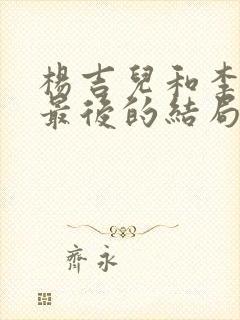 楊吉兒和李
最後的結局
齊永